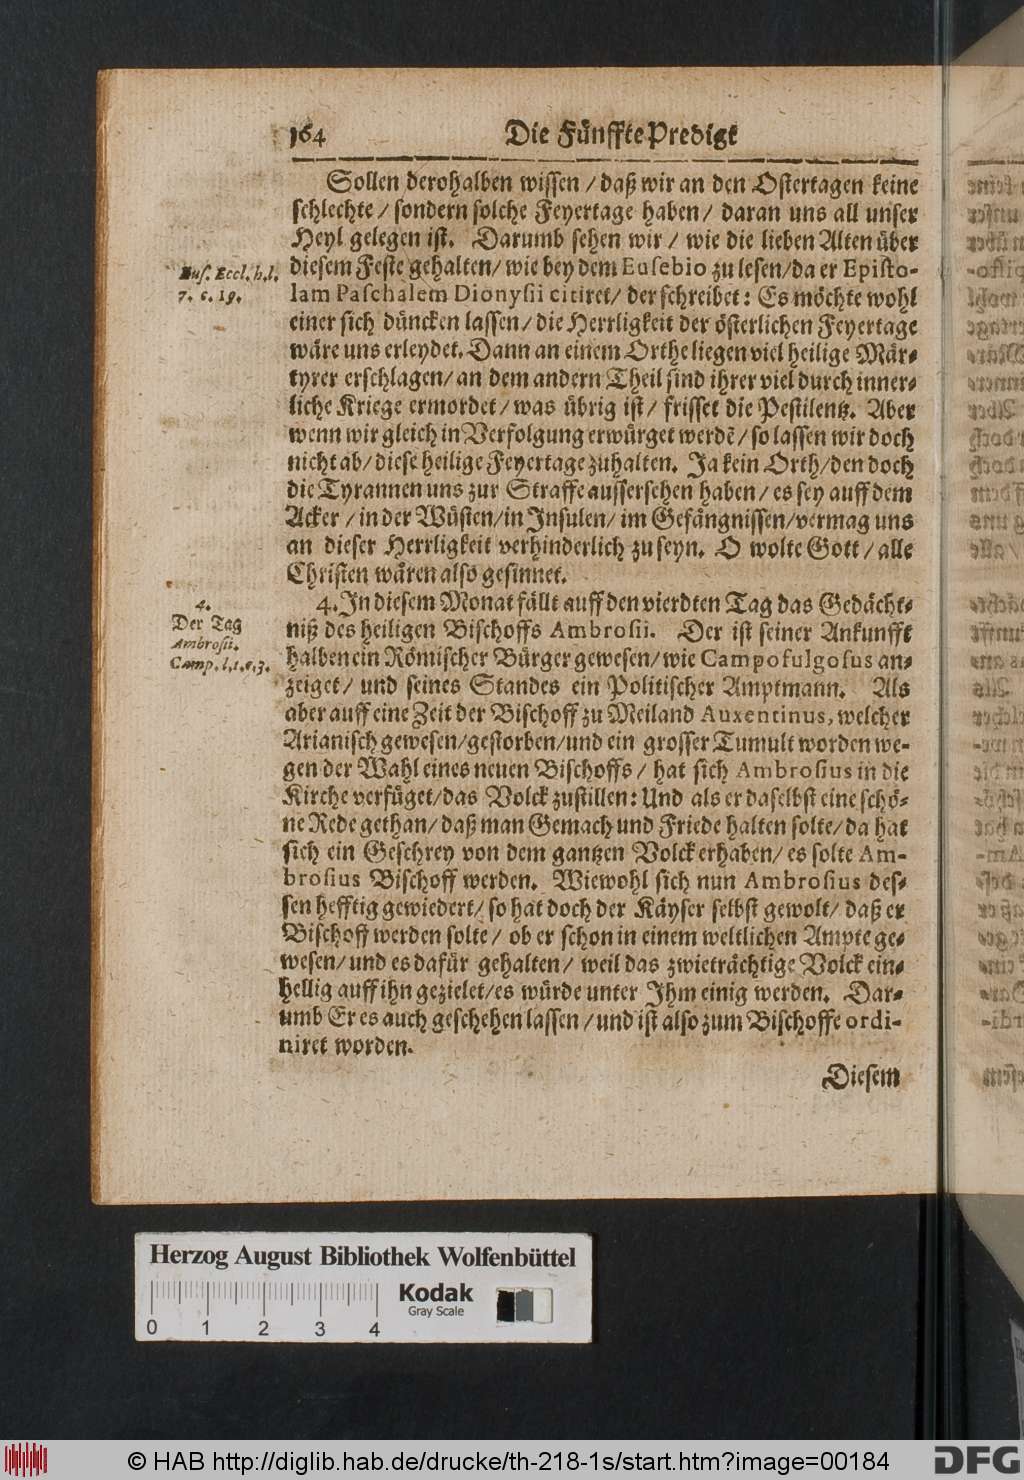 164 Die Fünffte Predigt
Sollen derohalben wissen / daß wir an den Ostertagen keine
schlechte / sondern solche Feyertage haben / daran uns all unser
Heyl gelegen ist. Darumb sehen wir / wie die lieben Alten über
diesem Feste gehalten / wie bey dem Eusebio zu lesen / da er Episto-
lam Paschalem Dionysii citiret / der schreibet: Es möchte wohl
einer sich düncken lassen / die Herrligkeit der österlichen Feyertage
wäre uns erleydet. Dann an einem Orthe liegen viel heilige Mär-
tyrer erschlagen / an dem andern Theil sind ihrer viel durch inner-
liche Kriege ermordet / was übrig ist / frisset die Pestilentz. Aber
wenn wir gleich in Verfolgung erwürget werdẽ / so lassen wir doch
nicht ab / diese heilige Feyertage zuhalten. Ja kein Orth / den doch
die Tyrannen uns zur Straffe ausersehen haben / es sey auff dem
Acker / in der Wüsten / in Insulen / im Gefängnissen / vermag uns
an dieser Herrligkeit verhinderlich zu seyn. O wolte Gott / alle
Christen wären also gesinnet.
Eus. Eccl. h. l.
7. c. 19.
4. In diesem Monat fällt auff den vierdten Tag das Gedächt-
niß des heiligen Bischoffs Ambrosii. Der ist seiner Ankunfft
halben ein Römischer Bürger gewesen / wie Campofulgosus an-
zeiget / und seines Standes ein Politischer Amptmann. Als
aber auff eine Zeit der Bischoff zu Meiland Auxentinus, welcher
Arianisch gewesen / gestorben / und ein grosser Tumult worden we-
gen der Wahl eines neuen Bischoffs / hat sich Ambrosius in die
Kirche verfüget / das Volck zustillen: Und als er daselbst eine schö-
ne Rede gethan / daß man Gemach und Friede halten solte / da hat
sich ein Geschrey von dem gantzen Volck erhaben / es solte Am-
brosius Bischoff werden. Wiewohl sich nun Ambrosius des-
sen hefftig gewiedert / so hat doch der Käyser selbst gewolt / daß er
Bischoff werden solte / ob er schon in einem weltlichen Ampte ge-
wesen / und es dafür gehalten / weil das zwieträchtige Volck ein-
hellig auff ihn gezielet / es würde unter Ihm einig werden. Dar-
umb Er es auch geschehen lassen / und ist also zum Bischoffe ordi-
niret worden.
4.
Der Tag
Ambrosii.
Camp. l. 1. c. 3.
Diesem
Herzog August Bibliothek Wolfenbüttel
Kodak
Gray Scale
0 1 2 3 4
© HAB http://diglib.hab.de/drucke/th-218-1s/start.htm?image=00184
DFG